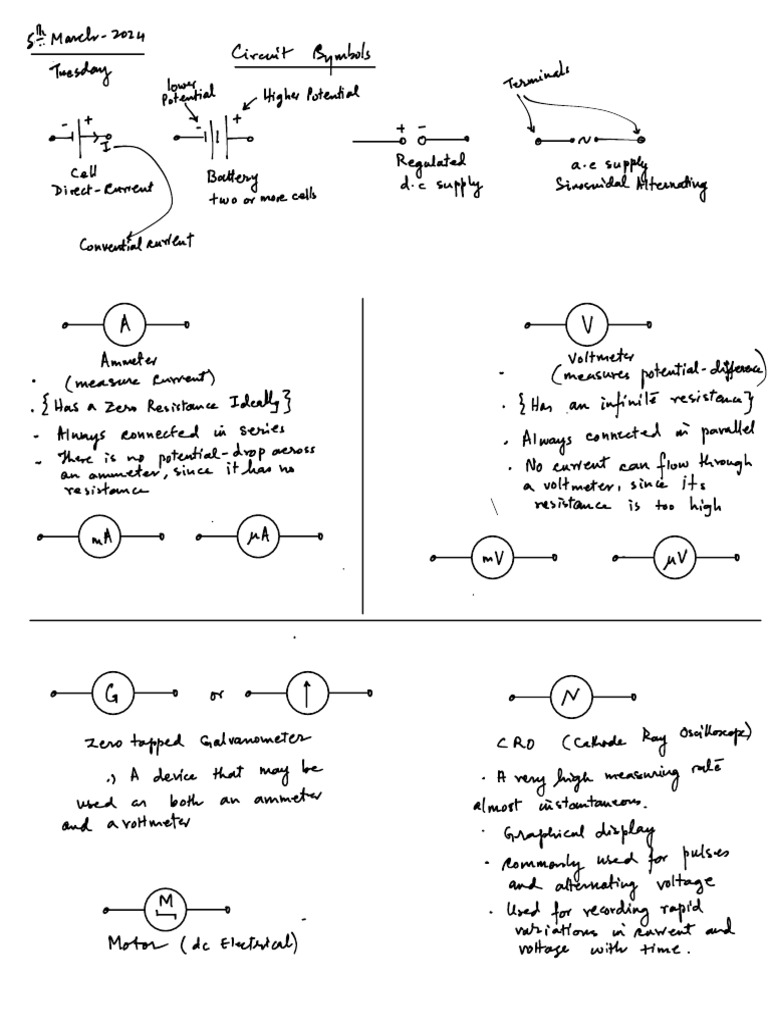 5th March-2024
Tuesday
Circuit Symbols
lower
Potential
Higher Potential
Terminals
- +
I
Cell
Direct-Current
Convential current
- +
Battery
two or more cells
+ -
Regulated
d.c supply
~
a.c supply
Sinosuidal Alternating
A
Ammeter
· (measure current)
· {Has a Zero Resistance Ideally}
- Always connected in series
- There is no potential-drop across
an ammeter, since it has no
resistance
mA
μA
V
Voltmeter
- (measures potential-difference)
· {Has an infinite resistance}
· Always connected in parallel
· No current can flow through
a voltmeter, since its
resistance is too high
mV
μV
G or ↑
Zero tapped Galvanometer
∴ A device that may be
used as both an ammeter
and a voltmeter
M
Motor (dc Electrical)
~
CRO (Cathode Ray Oscilloscope)
· A very high measuring rate
almost instantaneous.
· Graphical display
· Commonly used for pulses
and alternating voltage
· Used for recording rapid
variations in current and
voltage with time.